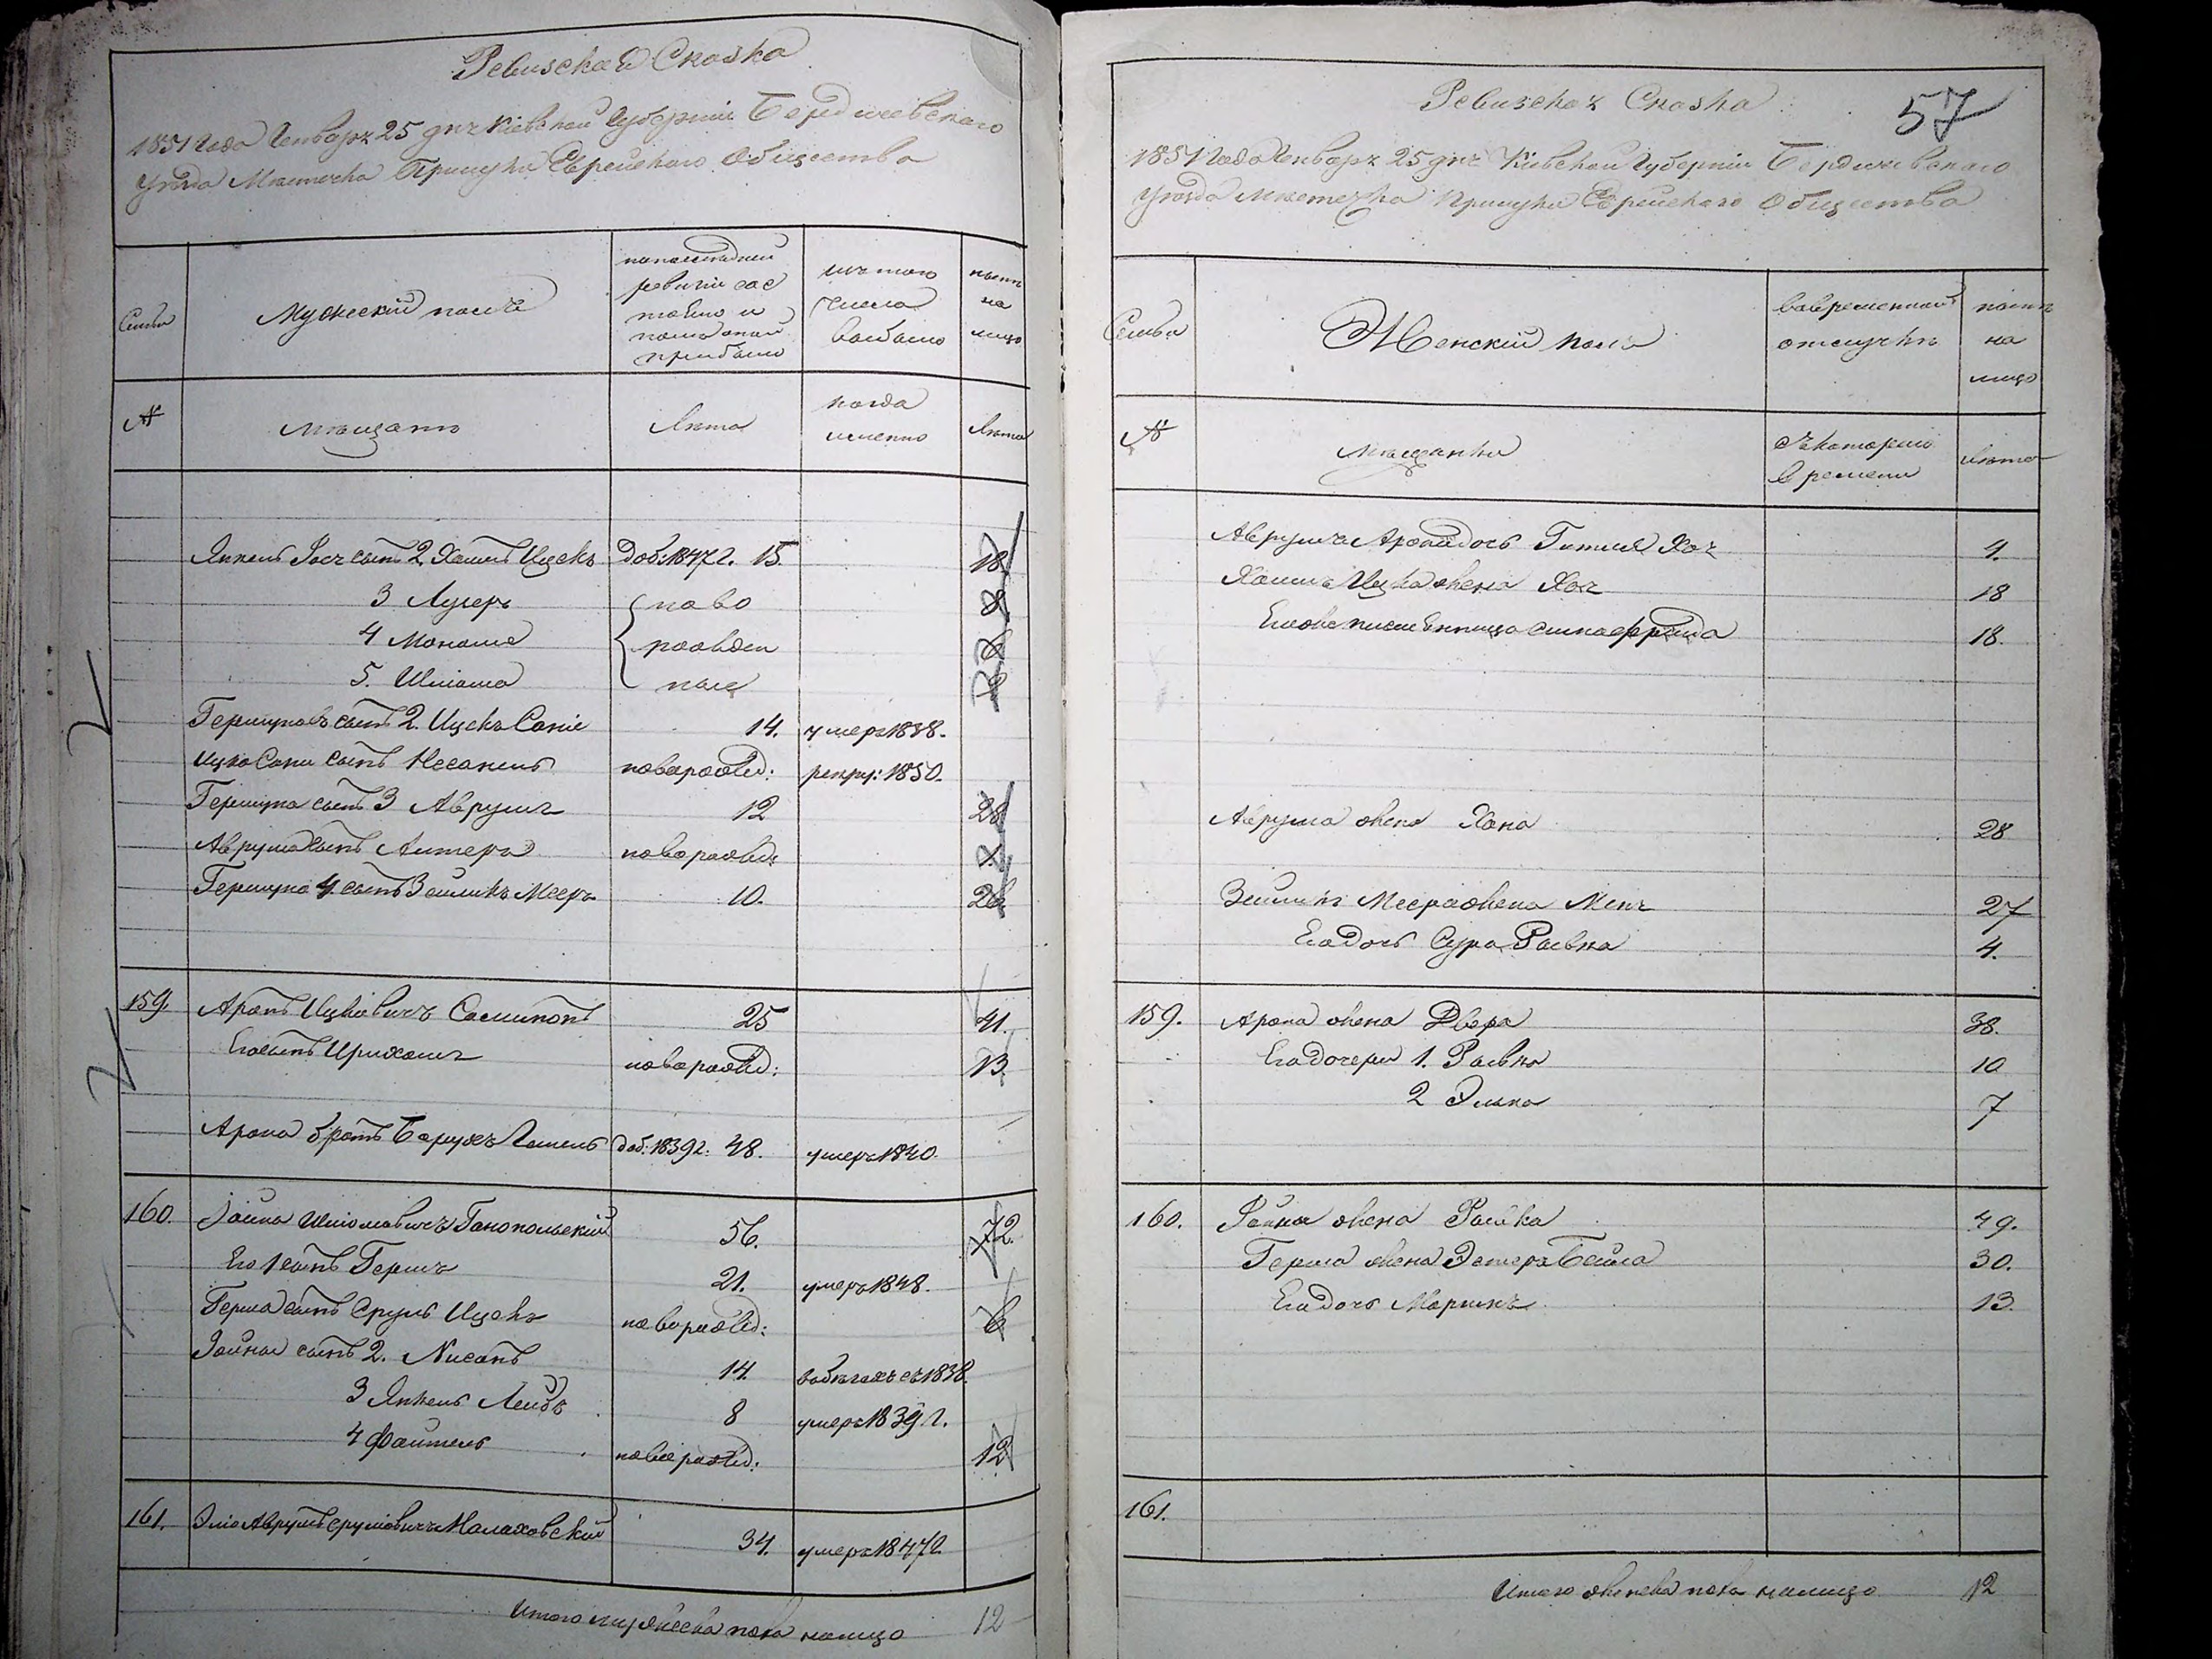 Ревизская Сказка
1851 Года Генваря 25 дня Киевской Губернии Бердичевского
Уезда Местечка Прилуки Еврейского Общества
Семьи
Мужеский полъ
попоследней
ревизии сос
тояло и
после оной
прибыло
изъ того
числа
выбыло
ныне
на
лицо
№
мещане
Лета
когда
именно
Лета
Янкель Гося сынъ 2. Хаимъ Ицекъ доб: 1847 г. 15. 18
3 Лузеръ ново 8
4 Монаше рожден
5. Шліома ные
Гершковъ сынъ 2. Ицекъ Соніе 14. умеръ 1838.
Ицка Сони сынъ Несанель новорожд: рекру: 1850.
Гершка сынъ 3 Аврумъ 12 28
Аврума сынъ Алтеръ новорожд:
Гершка 4. сынъ Зейликъ Мееръ 10. 26
159. Аронъ Ицковичъ 25 41.
Его сынъ новорожд: 13.
Арона братъ Барухъ доб: 1839 г. 48. умеръ 1840.
160. Шліомовичъ Ганопольский 56. 72.
Его 1 сынъ Гершъ 21. умеръ 1848.
Герша сынъ Сруль Ицекъ новорожд: 6
сынъ 2. Нисонъ 14. 1838.
3 Янкель Лейбъ 8 умеръ 1839 г.
4 Файтель новорожд: 12
161. Эліо Аврумъ Сруліовичъ Малаховский 34. умеръ 1847 г.
Итого мужеска пола налицо 12
57
Ревизская Сказка
1851 Года Генваря 25 дня Киевской Губернии Бердичевского
Уезда Местечка Прилуки Еврейского Общества
Семьи
Женский полъ
вовременной
отлучке
ныне
на
лицо
№
мещанки
съ котораго
времени
Лета
Аврума Арона дочь Гитля Хая 4.
Хаима Ицка жена Хая 18
18.
Аврума жена Хана 28
Зейлика Меера жена Меня 27
Его дочь Сура Ривка 4.
159. Арона жена Двера 38.
Его дочери 1. Ривка 10
2 Элька 7
160. жена Ривка 49.
Герша жена Эстеръ Бейла 30.
Его дочь 13.
161.
Итого женска пола налицо 12